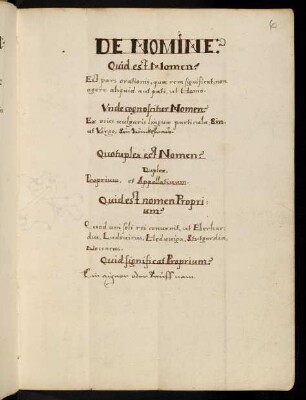 6
DE NOMINE.
Quid est Nomen?
Est pars orationis, quæ rem significat, non
agere aliquid aut pati, ut Homo.
Vnde cognoscitur Nomen?
Ex vulgaris linguæ particula, Ein.
ut Virgo. Ein
Quotuplex est Nomen?
Duplex.
Proprium, et Appellativum.
Quid est nomen Propri-
um?
Quod uni soli rei convenit, ut Eberhar-
dus, Ludovicus, Hedwiga, Stutgardia,
Niccarus.
Quid significat Proprium?
Ein aigner oder Tauff nam.